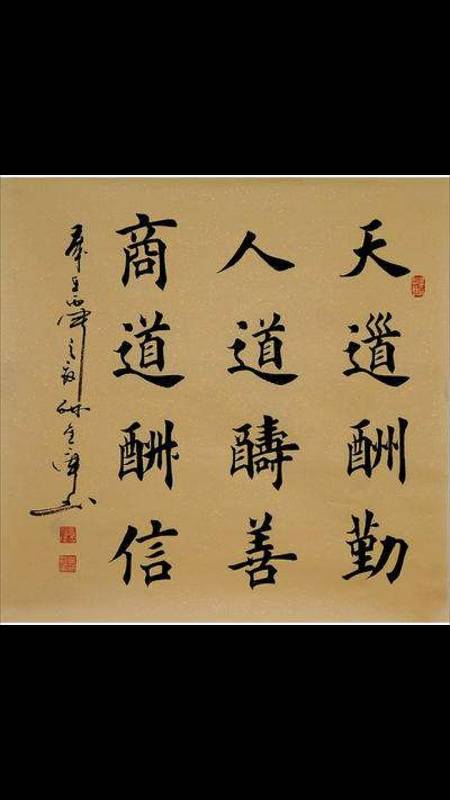 天道酬勤
人道醻善
商道酬信